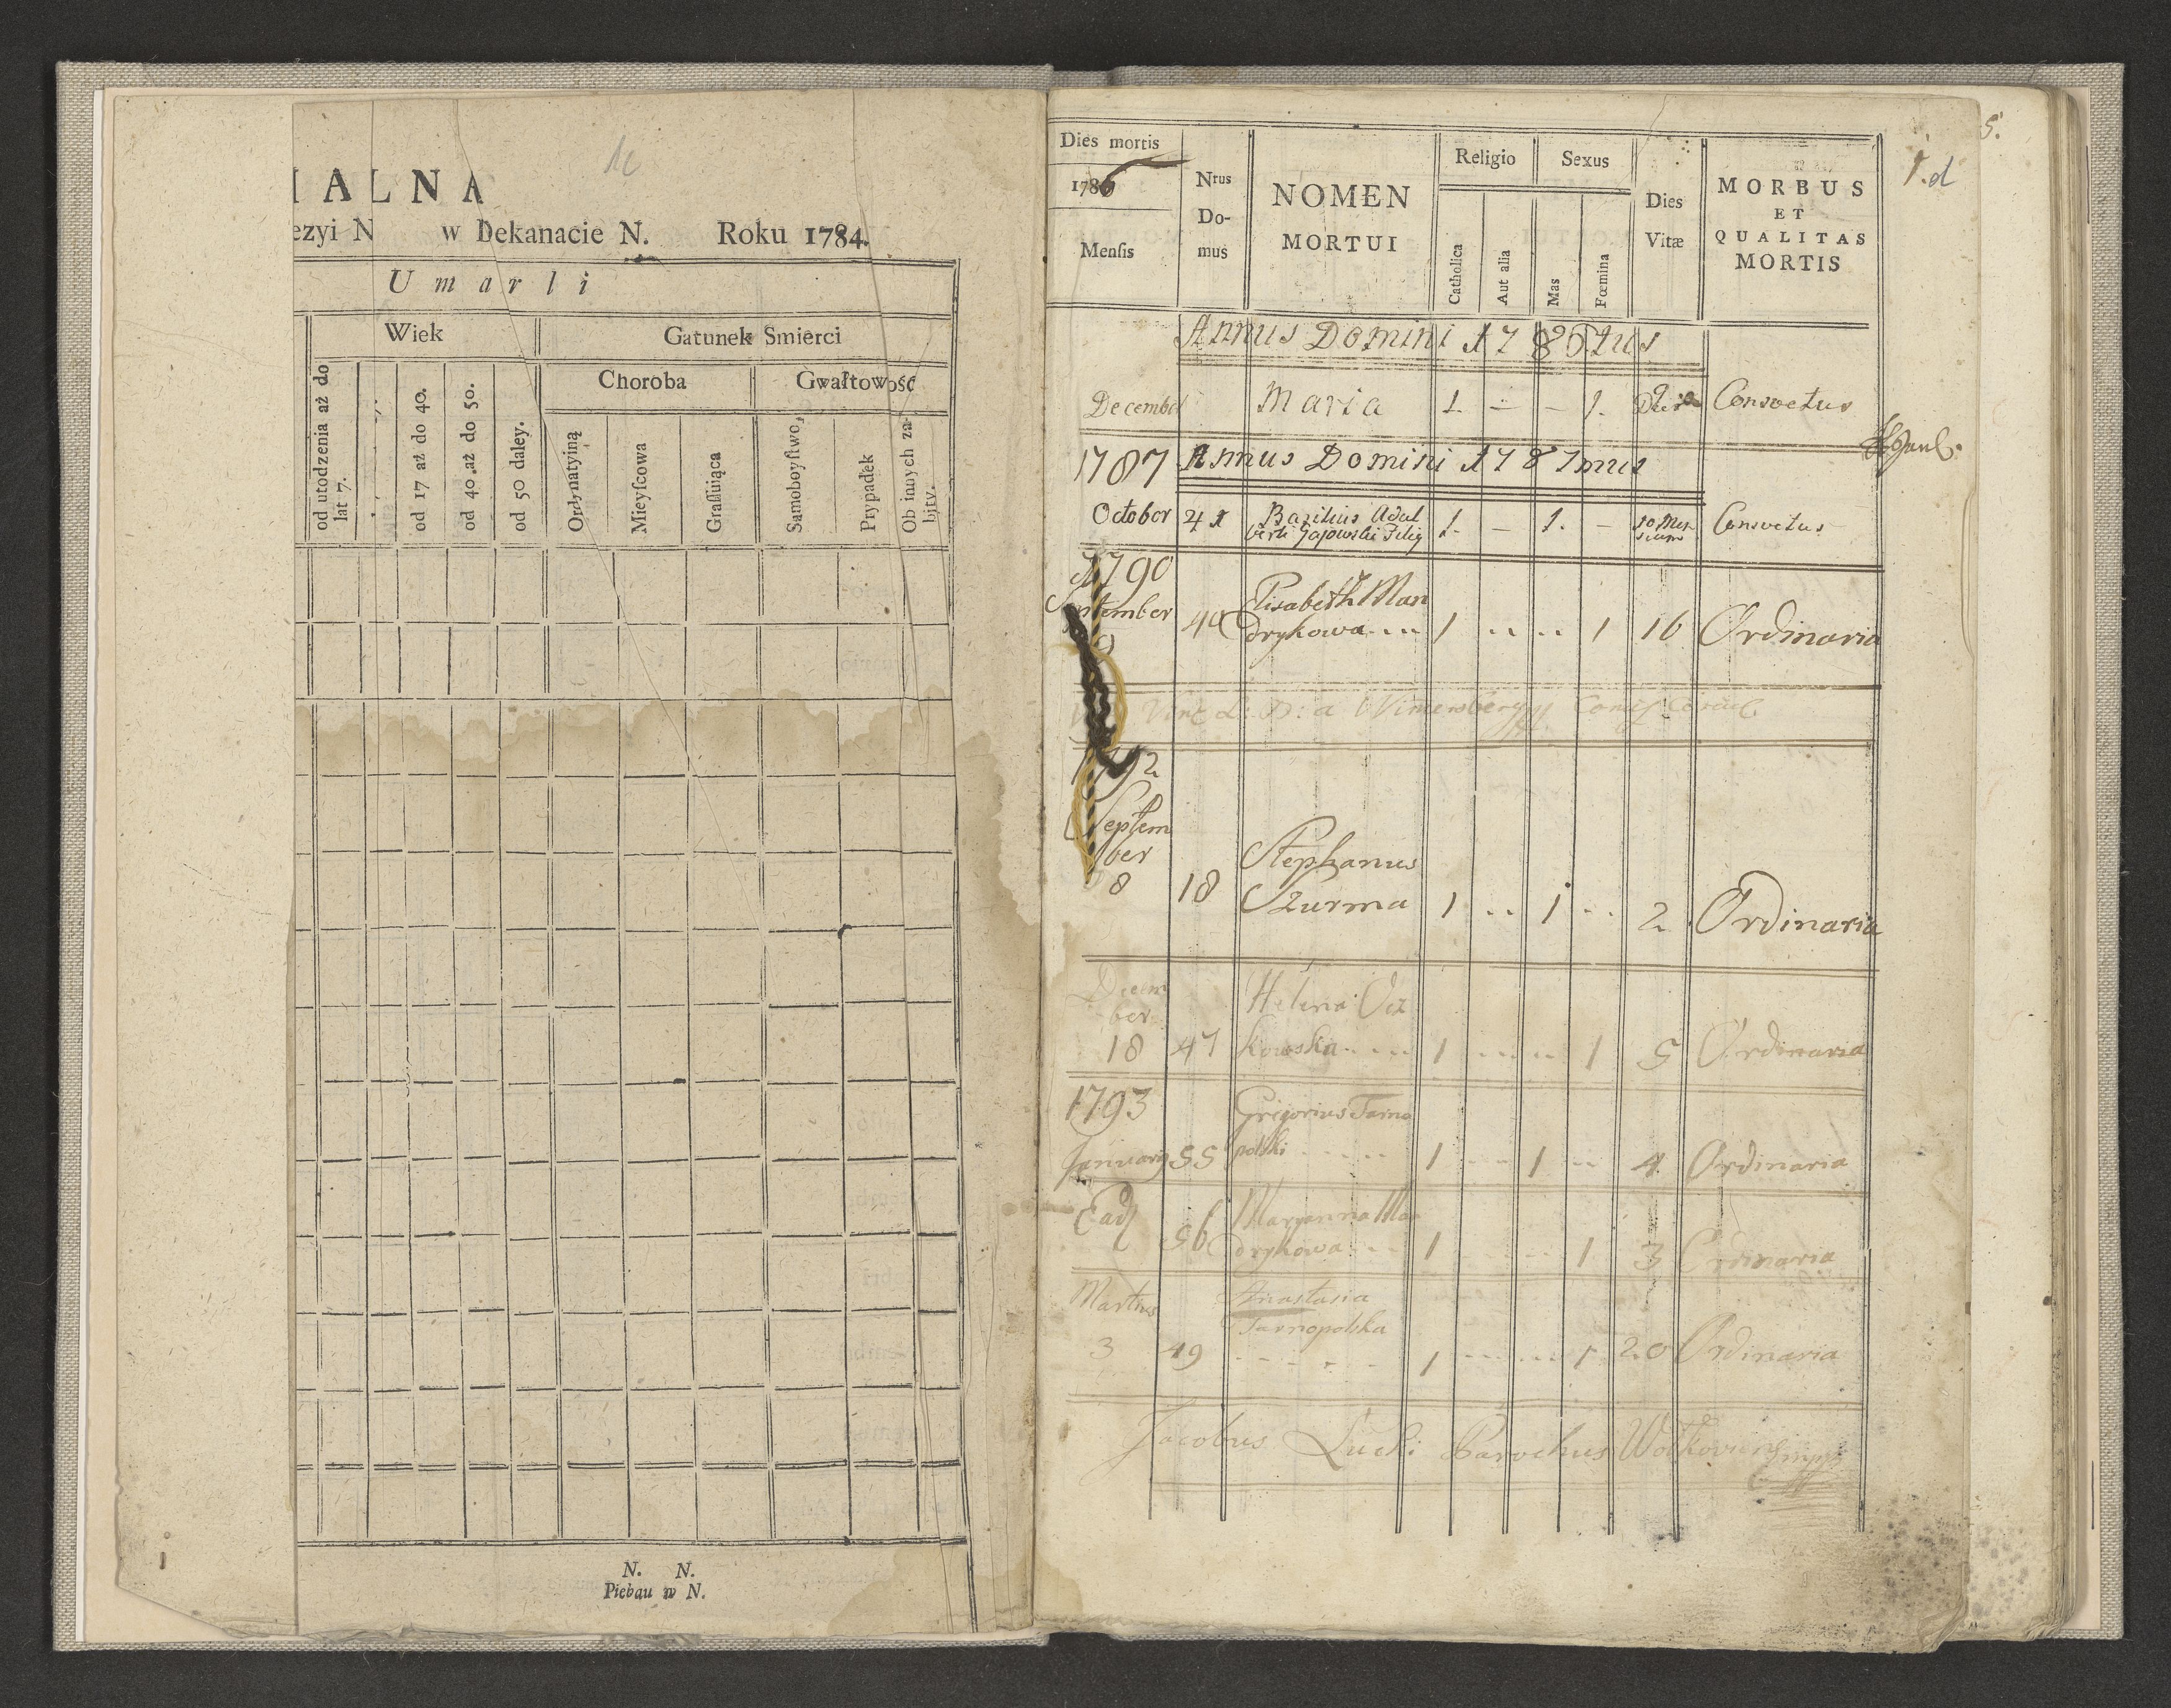 1c
IALNA
ezyi N w Dekanacie N. Roku 1784.
Umarli
Wiek
Gatunek Smierci
Choroba
Gwałtowość
od utodzenia aż do
lat 7.
od 17 aż do 40.
od 40 .aż do 50.
od 50 daley.
Ordynatyiną
Mieyſcowa
Graſſuiąca
Samoboyſtwo,
Przypadek
Ob innych za-
bity.
N. N.
Pleban w N.
5.
1.d
Dies mortis
1786
Menſis
Nrus
Do-
mus
NOMEN
MORTUI
Religio
Catholica
Aut alia
Sexus
Mas
Fœmina
Dies
Vitæ
MORBUS
ET
QUALITAS
MORTIS
Annus Domini 1786tus
December Maria 1 — — 1. Consvetus
1787 Annus Domini 1787mus
October 41 Bazilius Adal
berti Gajowski Filig 1. — 1. — 10 Men
sium Consvetus
1790
September
9 40 Elisabeth Man
drykowa.... 1 .. .. 1 16 Ordinaria
Vinc. L: B: a Wimersberg
1792
Septem
ber
8 18 Stephanus
Szurma 1 .. 1 .. 2 Ordinaria
Decem
ber
18 47 Helena
kowska.... 1 .... 1 5 Ordinaria
1793
January 55 Grigorius Tarno
polski 1 .. 1 .. 4 Ordinaria
56 Maryanna Man
drykowa 1 .... 1 3 Ordinaria
Martius
3 49 Anastasia
Tarnopolska 1 .... 1 20 Ordinaria
Jacobus Lucki Parochus